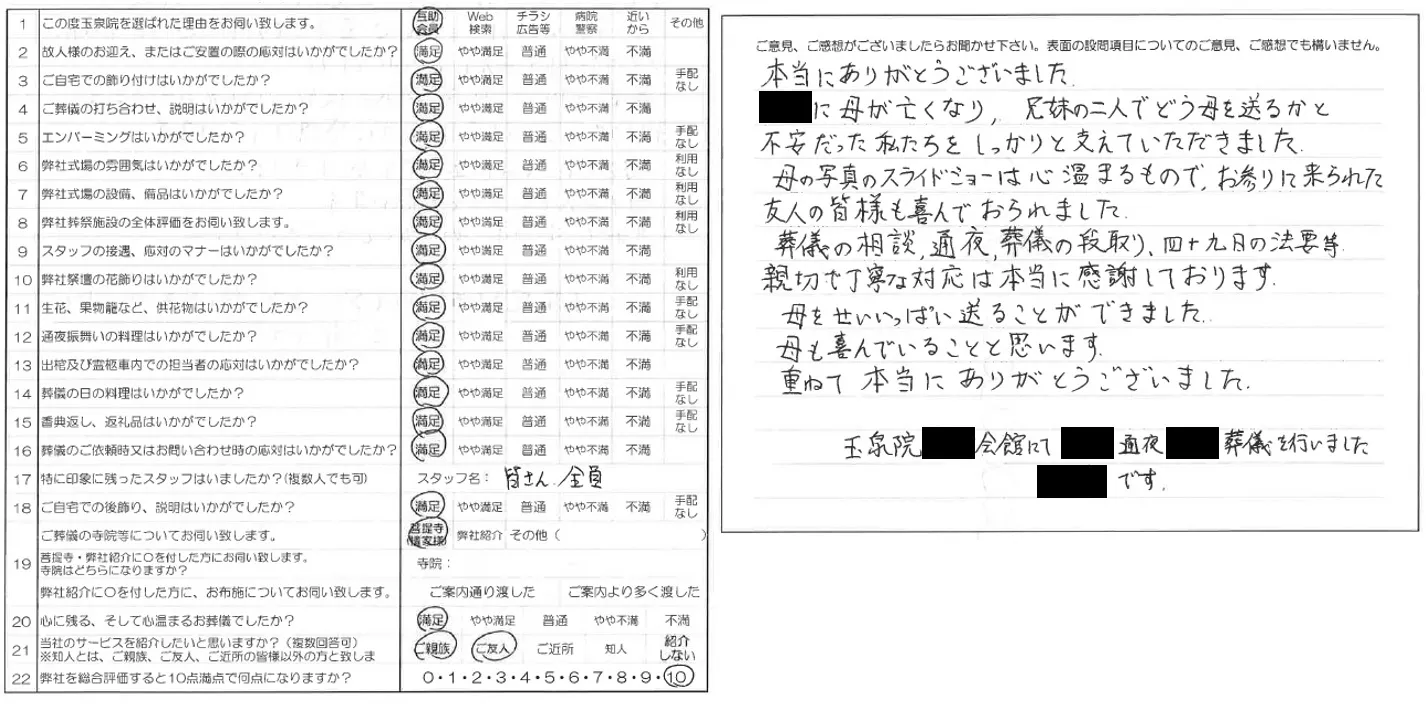 1 この度玉泉院を選ばれた理由をお伺い致します。 互助会員 Web検索 チラシ広告等 病院警察 近いから その他
2 故人様のお迎え、またはご安置の際の応対はいかがでしたか? 満足 やや満足 普通 やや不満 不満
3 ご自宅での飾り付けはいかがでしたか? 満足 やや満足 普通 やや不満 不満 手配なし
4 ご葬儀の打ち合わせ、説明はいかがでしたか? 満足 やや満足 普通 やや不満 不満
5 エンバーミングはいかがでしたか? 満足 やや満足 普通 やや不満 不満 手配なし
6 弊社式場の雰囲気はいかがでしたか? 満足 やや満足 普通 やや不満 不満 利用なし
7 弊社式場の設備、備品はいかがでしたか? 満足 やや満足 普通 やや不満 不満 利用なし
8 弊社葬祭施設の全体評価をお伺い致します。 満足 やや満足 普通 やや不満 不満 利用なし
9 スタッフの接遇、応対のマナーはいかがでしたか? 満足 やや満足 普通 やや不満 不満
10 弊社祭壇の花飾りはいかがでしたか? 満足 やや満足 普通 やや不満 不満 利用なし
11 生花、果物籠など、供花物はいかがでしたか? 満足 やや満足 普通 やや不満 不満 手配なし
12 通夜振舞いの料理はいかがでしたか? 満足 やや満足 普通 やや不満 不満 手配なし
13 出棺及び霊柩車内での担当者の応対はいかがでしたか? 満足 やや満足 普通 やや不満 不満
14 葬儀の日の料理はいかがでしたか? 満足 やや満足 普通 やや不満 不満 手配なし
15 香典返し、返礼品はいかがでしたか? 満足 やや満足 普通 やや不満 不満 手配なし
16 葬儀のご依頼時又はお問い合わせ時の応対はいかがでしたか? 満足 やや満足 普通 やや不満 不満
17 特に印象に残ったスタッフはいましたか?(複数人でも可) スタッフ名: 皆さん、全員
18 ご自宅での後飾り、説明はいかがでしたか? 満足 やや満足 普通 やや不満 不満 手配なし
19 ご葬儀の寺院等についてお伺い致します。 菩提寺(檀家様) 弊社紹介 その他( )
菩提寺・弊社紹介に○を付した方にお伺い致します。
寺院はどちらになりますか? 寺院:
弊社紹介に○を付した方に、お布施についてお伺い致します。 ご案内通り渡した ご案内より多く渡した
20 心に残る、そして心温まるお葬儀でしたか? 満足 やや満足 普通 やや不満 不満
21 当社のサービスを紹介したいと思いますか?(複数回答可) ご親族 ご友人 ご近所 知人 紹介しない
※知人とは、ご親族、ご友人、ご近所の皆様以外の方と致しま
22 弊社を総合評価すると10点満点で何点になりますか? 0・1・2・3・4・5・6・7・8・9・10
ご意見、ご感想がございましたらお聞かせ下さい。表面の設問項目についてのご意見、ご感想でも構いません。
本当にありがとうございました.
に母が亡くなり, 兄妹の二人でどう母を送るかと
不安だった私たちをしっかりと支えていただきました.
母の写真のスライドショーは心温まるもので, お参りに来られた
友人の皆様も喜んでおられました.
葬儀の相談, 通夜, 葬儀の段取り、四十九日の法要等
親切で丁寧な対応は本当に感謝しております.
母をせいいっぱい送ることができました.
母も喜んでいることと思います.
重ねて本当にありがとうございました.
玉泉院 会館にて 通夜 葬儀を行いました
です.